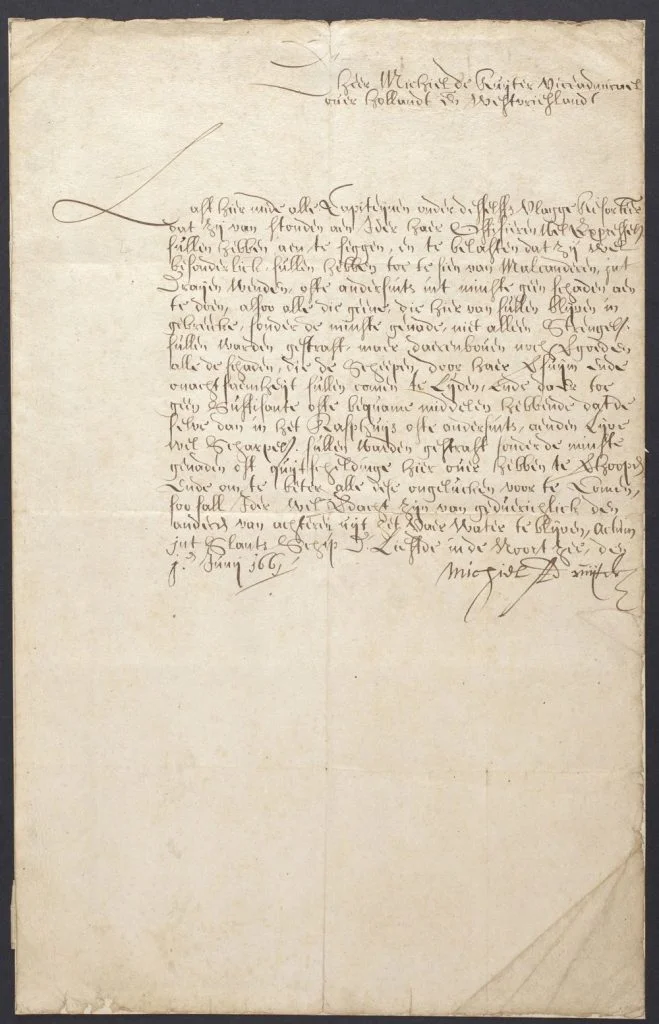 D'
Heer Michiel de Ruijter Viceadmirael
over Hollandt en Westvrieslandt
Last hier mede alle Capiteijnen onder desselfs Vlagge
dat zij van stonden aen Ider haer Officieren wel Expresselijck
sullen hebben aen te seggen, en te belasten dat zij wel
besonderlick sullen hebben toe te sien van Malcanderen, int
Draijen Wenden, ofte andersints int minste geen schaden aen
te doen, alsoo alle die geene, die hier van sullen blijven in
gebreecke, sonder de minste genade, niet alleen Strengel.
sullen warden gestraft, maer daerenboven noch
alle de schaden, die de Scheepen, door haer ende
onachtsaemheijt sullen comen te Lijden, Ende daer toe
geen Suffisante ofte bequame middelen hebbende datde
selve dan in het Rasphuijs ofte andersints, aenden Lijve
wel Scharpel. sullen warden gestraft sonder de minste
genaden oft quijtscheldinge hier over hebben te
Ende om te beter alle dese ongelucken voor te Comen,
soo sall Ider wel verdacht zijn van geduerichlick den
anderen van achteren uijt het Vaer Water te blijven, Actum
int Slants Schip D'Liefde inde Noort Zee, den
Junij 1661
Michiel A D Ruijter